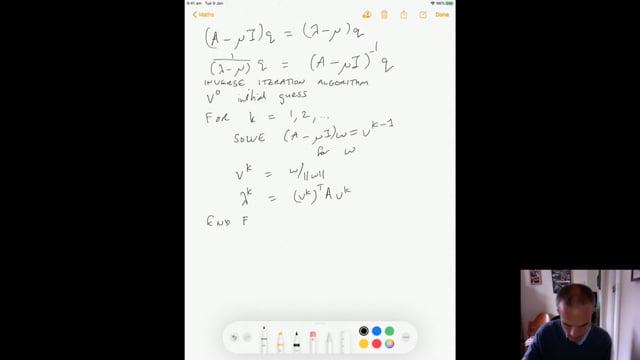 9:41 am Tue 9 Jan
86%
Maths
Done
(A - μI)q = (λ - μ)q
1/(λ - μ) q = (A - μI)⁻¹ q
INVERSE ITERATION ALGORITHM
V⁰ initial guess
FOR k = 1, 2, ...
SOLVE (A - μI)w = v^{k-1}
for w
v^k = w/||w||
λ^k = (v^k)^T A v^k
END F